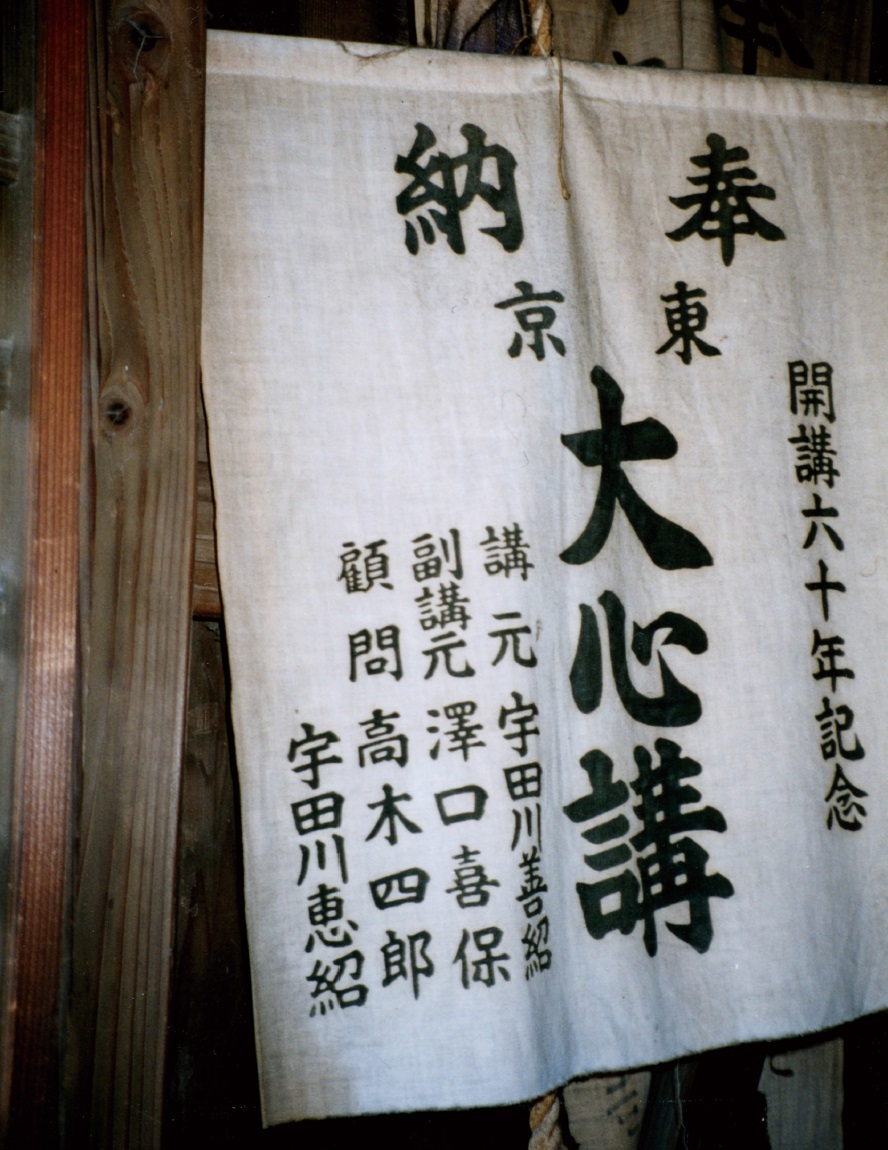 奉納
東京
開講六十年記念
大心講
講元 宇田川善紹
副講元 澤口喜保
顧問 高木四郎
宇田川恵紹